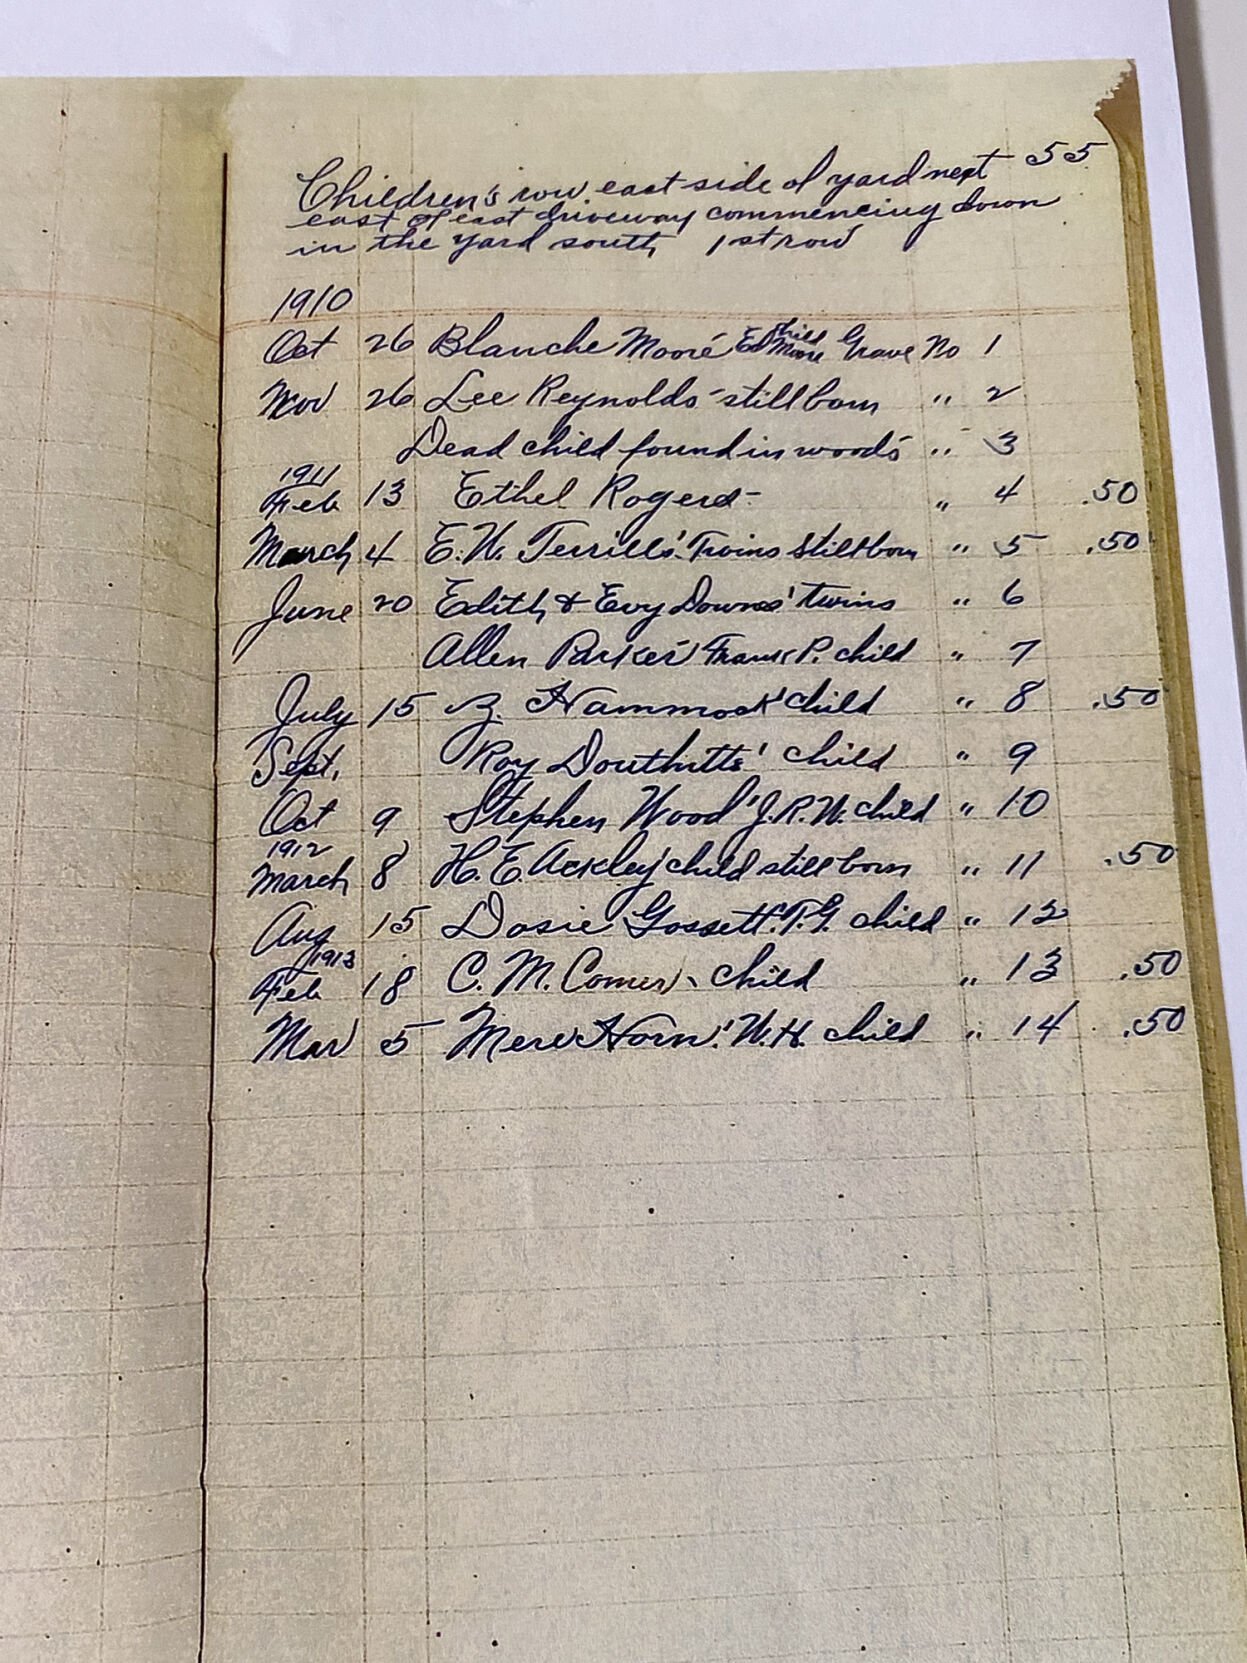 Children's row east side of yard next 55
east of east driveway commencing down
in the yard south 1st row
1910
Oct 26 Blanche Moore Ed Moore child Grave No 1
Nov 26 Lee Reynolds still born " 2
Dead child found in woods " 3
1911
Feb 13 Ethel Rogers " 4 .50
March 4 E. W. Terrills' Twins Stillborn " 5 .50
June 20 Edith & Evy Downs' twins " 6
Allen Parker Frank P. child " 7
July 15 Z. Hammock child " 8 .50
Sept. Roy Douthitts' child " 9
Oct 9 Stephen Wood J.R.W. child " 10
1912
March 8 H. E. Ackley child still born " 11 .50
Aug 15 Dosie Gossett. T.G. child " 12
1913
Feb 18 C. M. Comer child " 13 .50
Mar 5 Horn. W.H. child " 14 .50